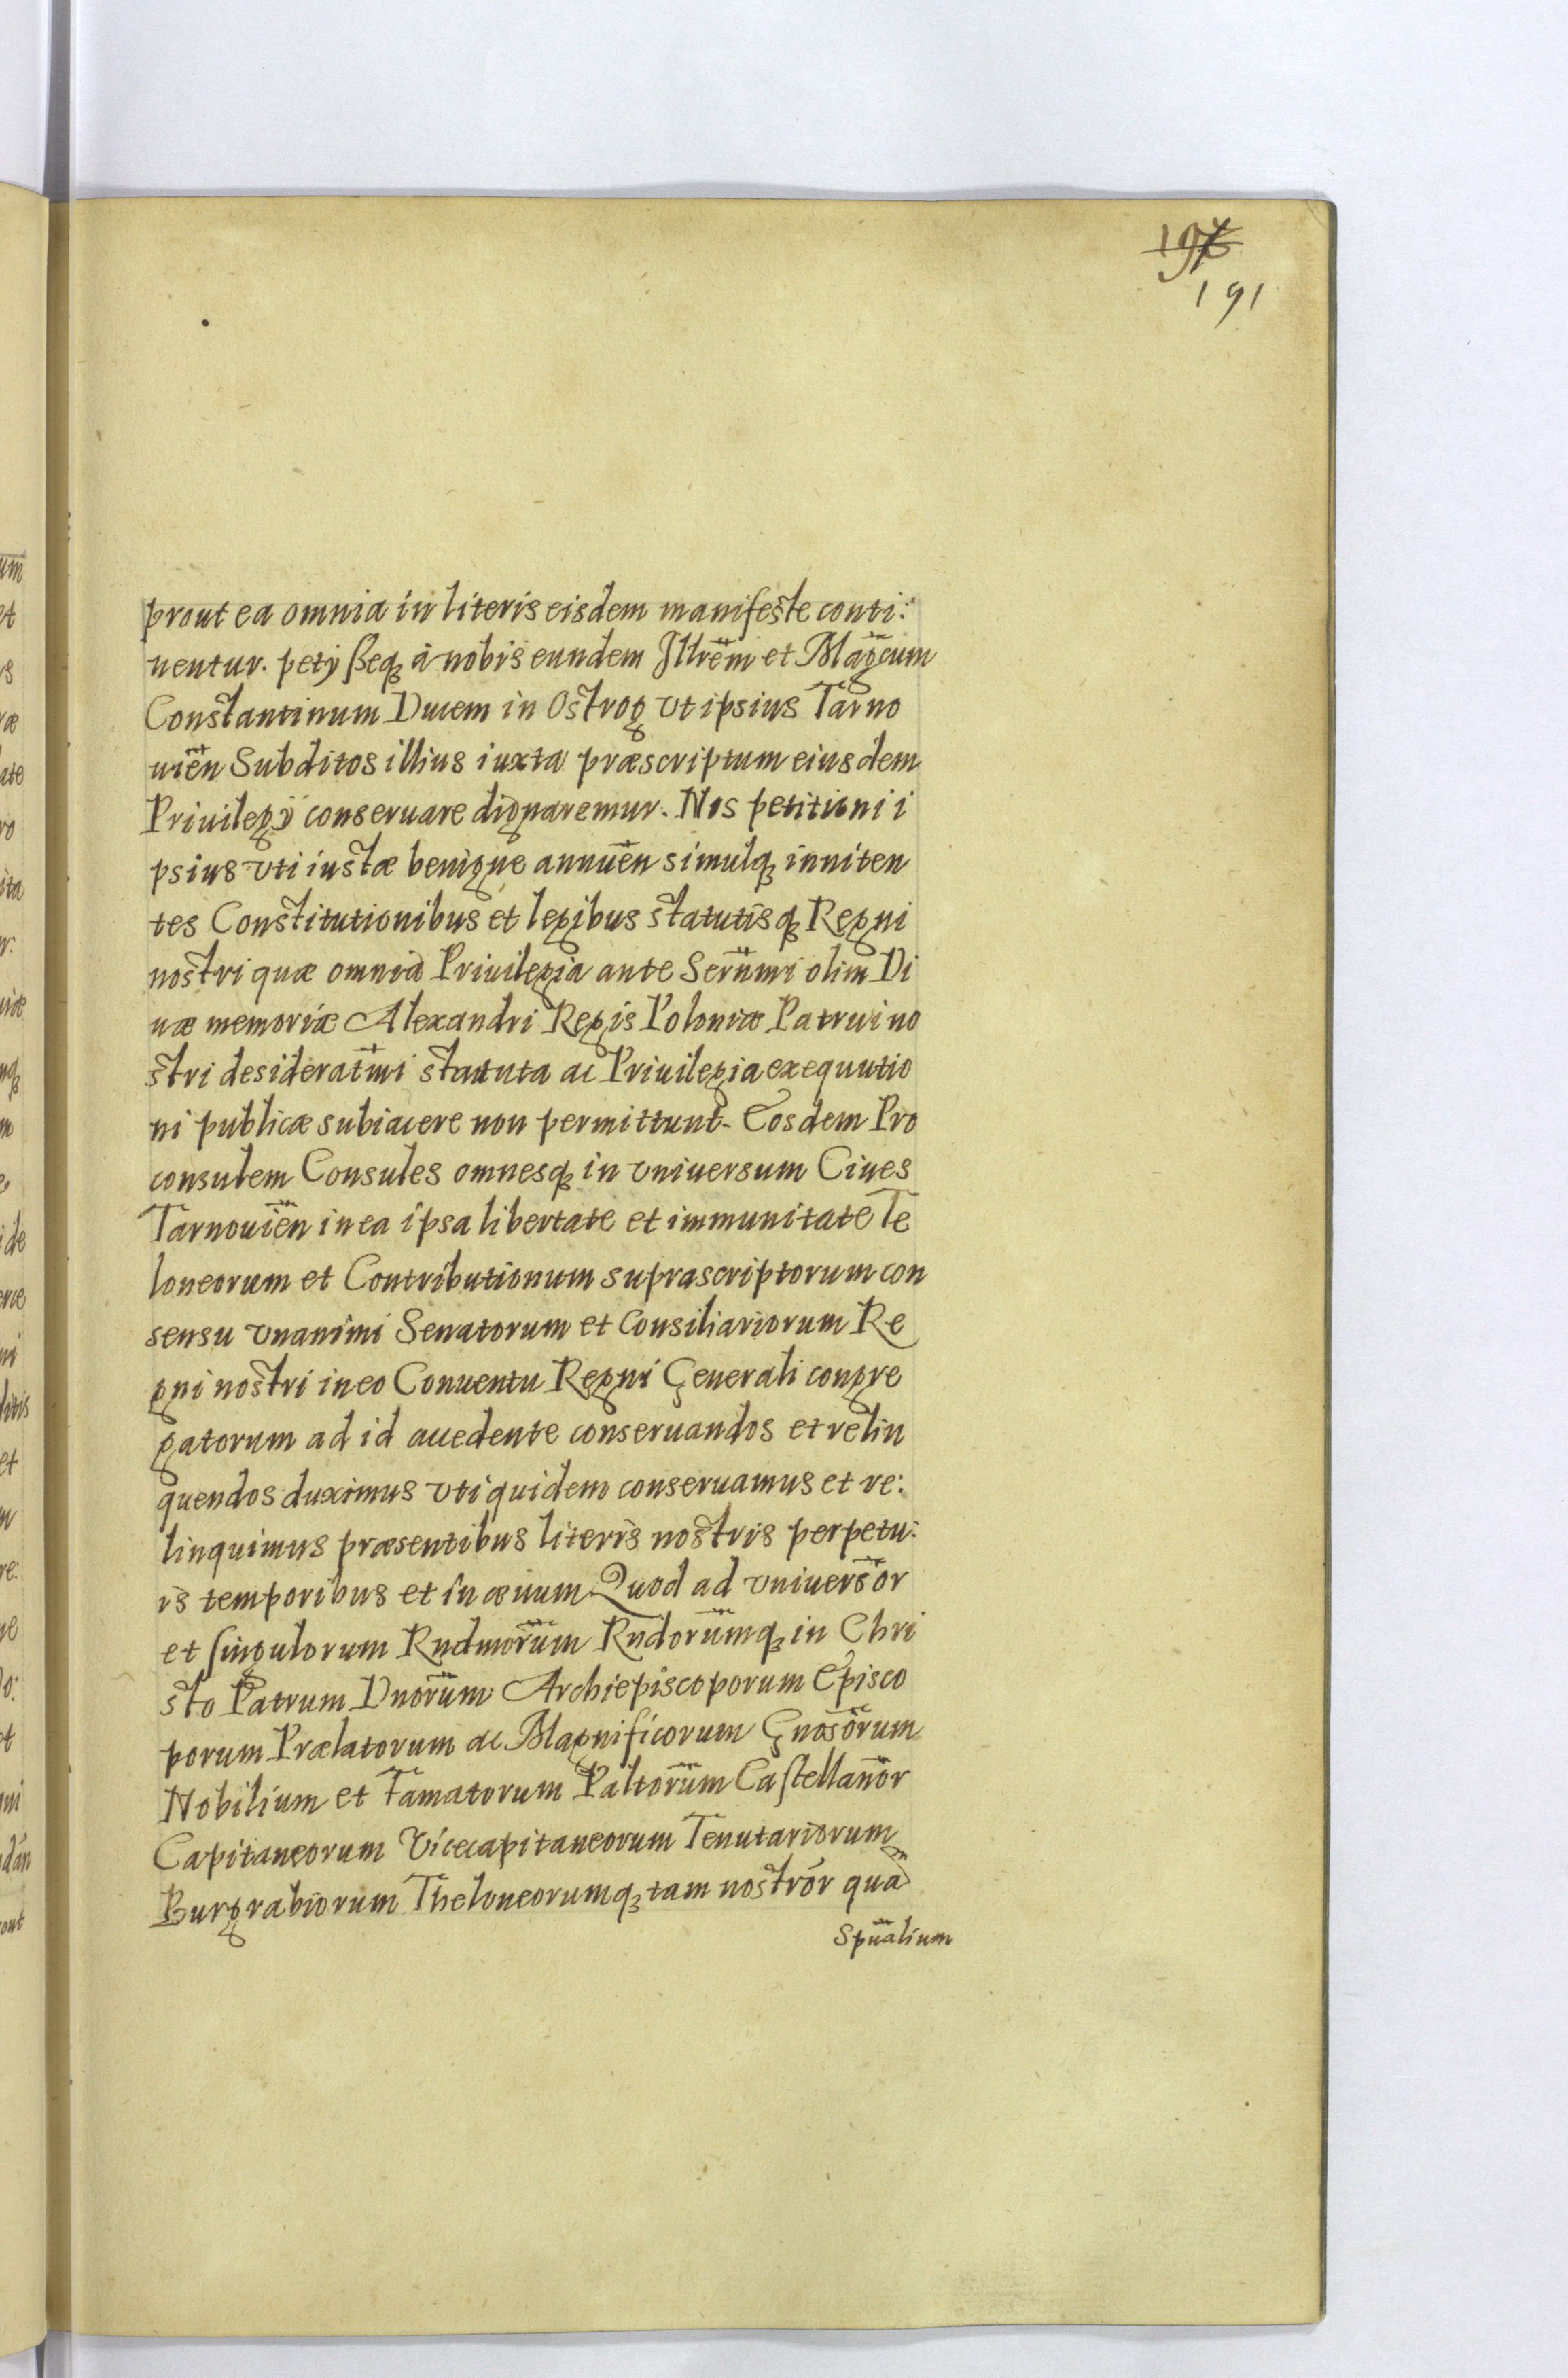 197
191
prout ea omnia in literis eisdem manifeste conti:
nentur. petÿßeq₃ a nobis eundem Jllrem̃ et Mag̃cum
Constantinum Ducem in Ostrog vt ipsius Tarno
uieñ Subditos illius iuxta præscriptum eiusdem
Priuilegÿ conseruare dignaremur. Nos petitioni i
psius vti iustæ benigne annueñ simulq₃ inniten
tes Constitutionibus et legibus statutisq₃ Regni
nostri quæ omnia Priuilegia ante Serũmi olim Di
uæ memoriæ Alexandri Regis Poloniæ Patrui no
stri desideratm̃i statuta ac Priuilegia exequutio
ni publicæ subiacere non permittunt. Eosdem Pro
consulem Consules omnesq₃ in vniuersum Ciues
Tarnouieñ in ea ipsa libertate et immunitate Te
loneorum et Contributionum suprascriptorum con
sensu vnanimi Senatorum et Consiliariorum Re
gni nostri in eo Conuentu Regni Generali congre
gatorum ad id accedente conseruandos et relin
quendos duximus vti quidem conseruamus et re:
linquimus præsentibus literis nostris perpetu:
is temporibus et in æuum Quod ad vniuersor̃
et singulorum Rndmorũm Rndorũmq₃ in Chri
sto Patrum Dnorũm Archiepiscoporum Episco
porum Prælatorum ac Magnificorum Gnosõrum
Nobilium et Famatorum Paltorũm Castellanor̃
Capitaneorum Vicecapitaneorum Tenutariorum
Burgrabiorum Theloneorumq₃ tam nostrór quam
Spũalium